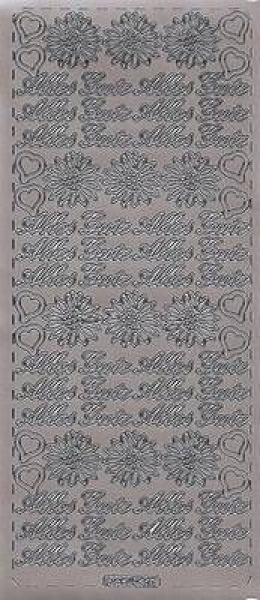 Alles Gute Alles Gute
Alles Gute Alles Gute
Alles Gute Alles Gute
Alles Gute Alles Gute
Alles Gute Alles Gute
Alles Gute Alles Gute
Alles Gute Alles Gute
Alles Gute Alles Gute
Alles Gute Alles Gute
Alles Gute Alles Gute
Alles Gute Alles Gute
Alles Gute Alles Gute